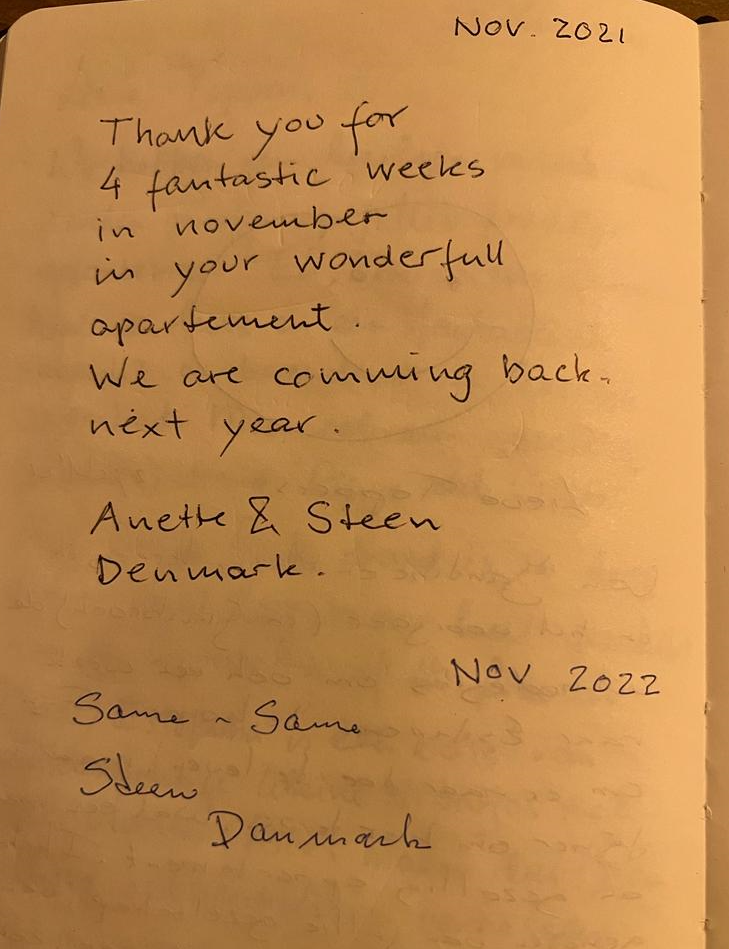 Nov. 2021
Thank you for
4 fantastic weeks
in november
in your wonderfull
apartement.
We are comming back.
next year.
Anette & Steen
Denmark.
Nov 2022
Same ~ Same
Steen
Danmark